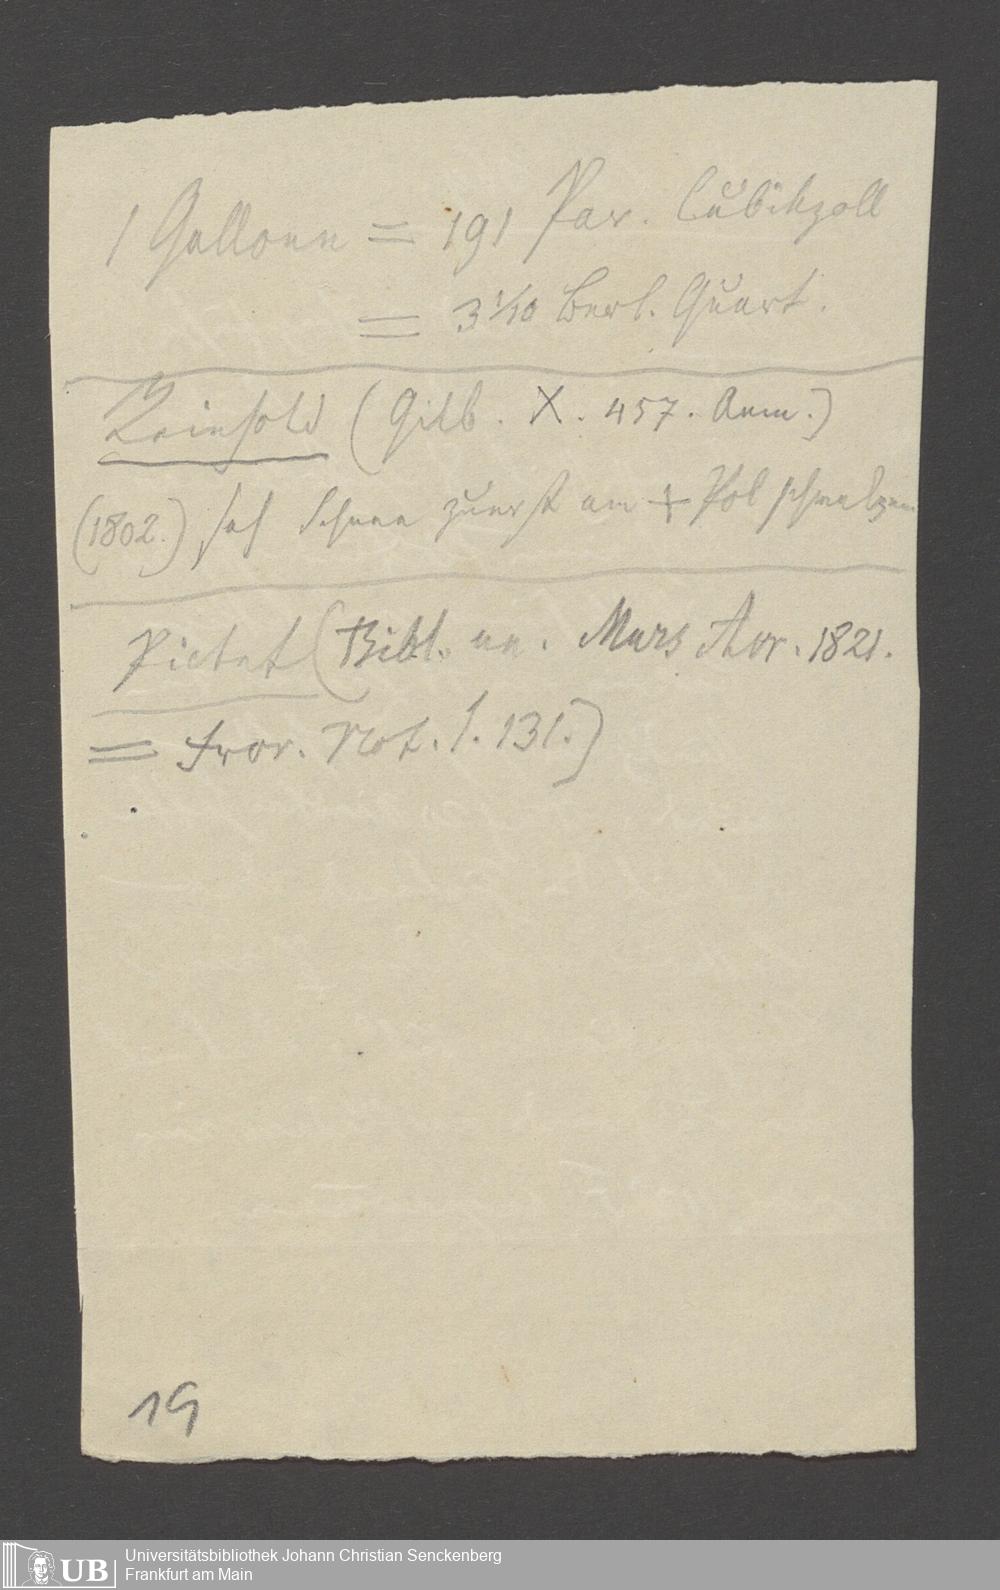 1 Gallone = 191 Par. Cubikzoll
= 3 1/10 Berl. Quart.
Reinhold (Gilb. X. 457. Anm.)
(1802.) sah Schnee zuerst am + Pol schmelzen
Pictet (Bibl. un. Mars 1821.
= Fror. Not. 1. 131.)
19
UB Universitätsbibliothek Johann Christian Senckenberg
Frankfurt am Main